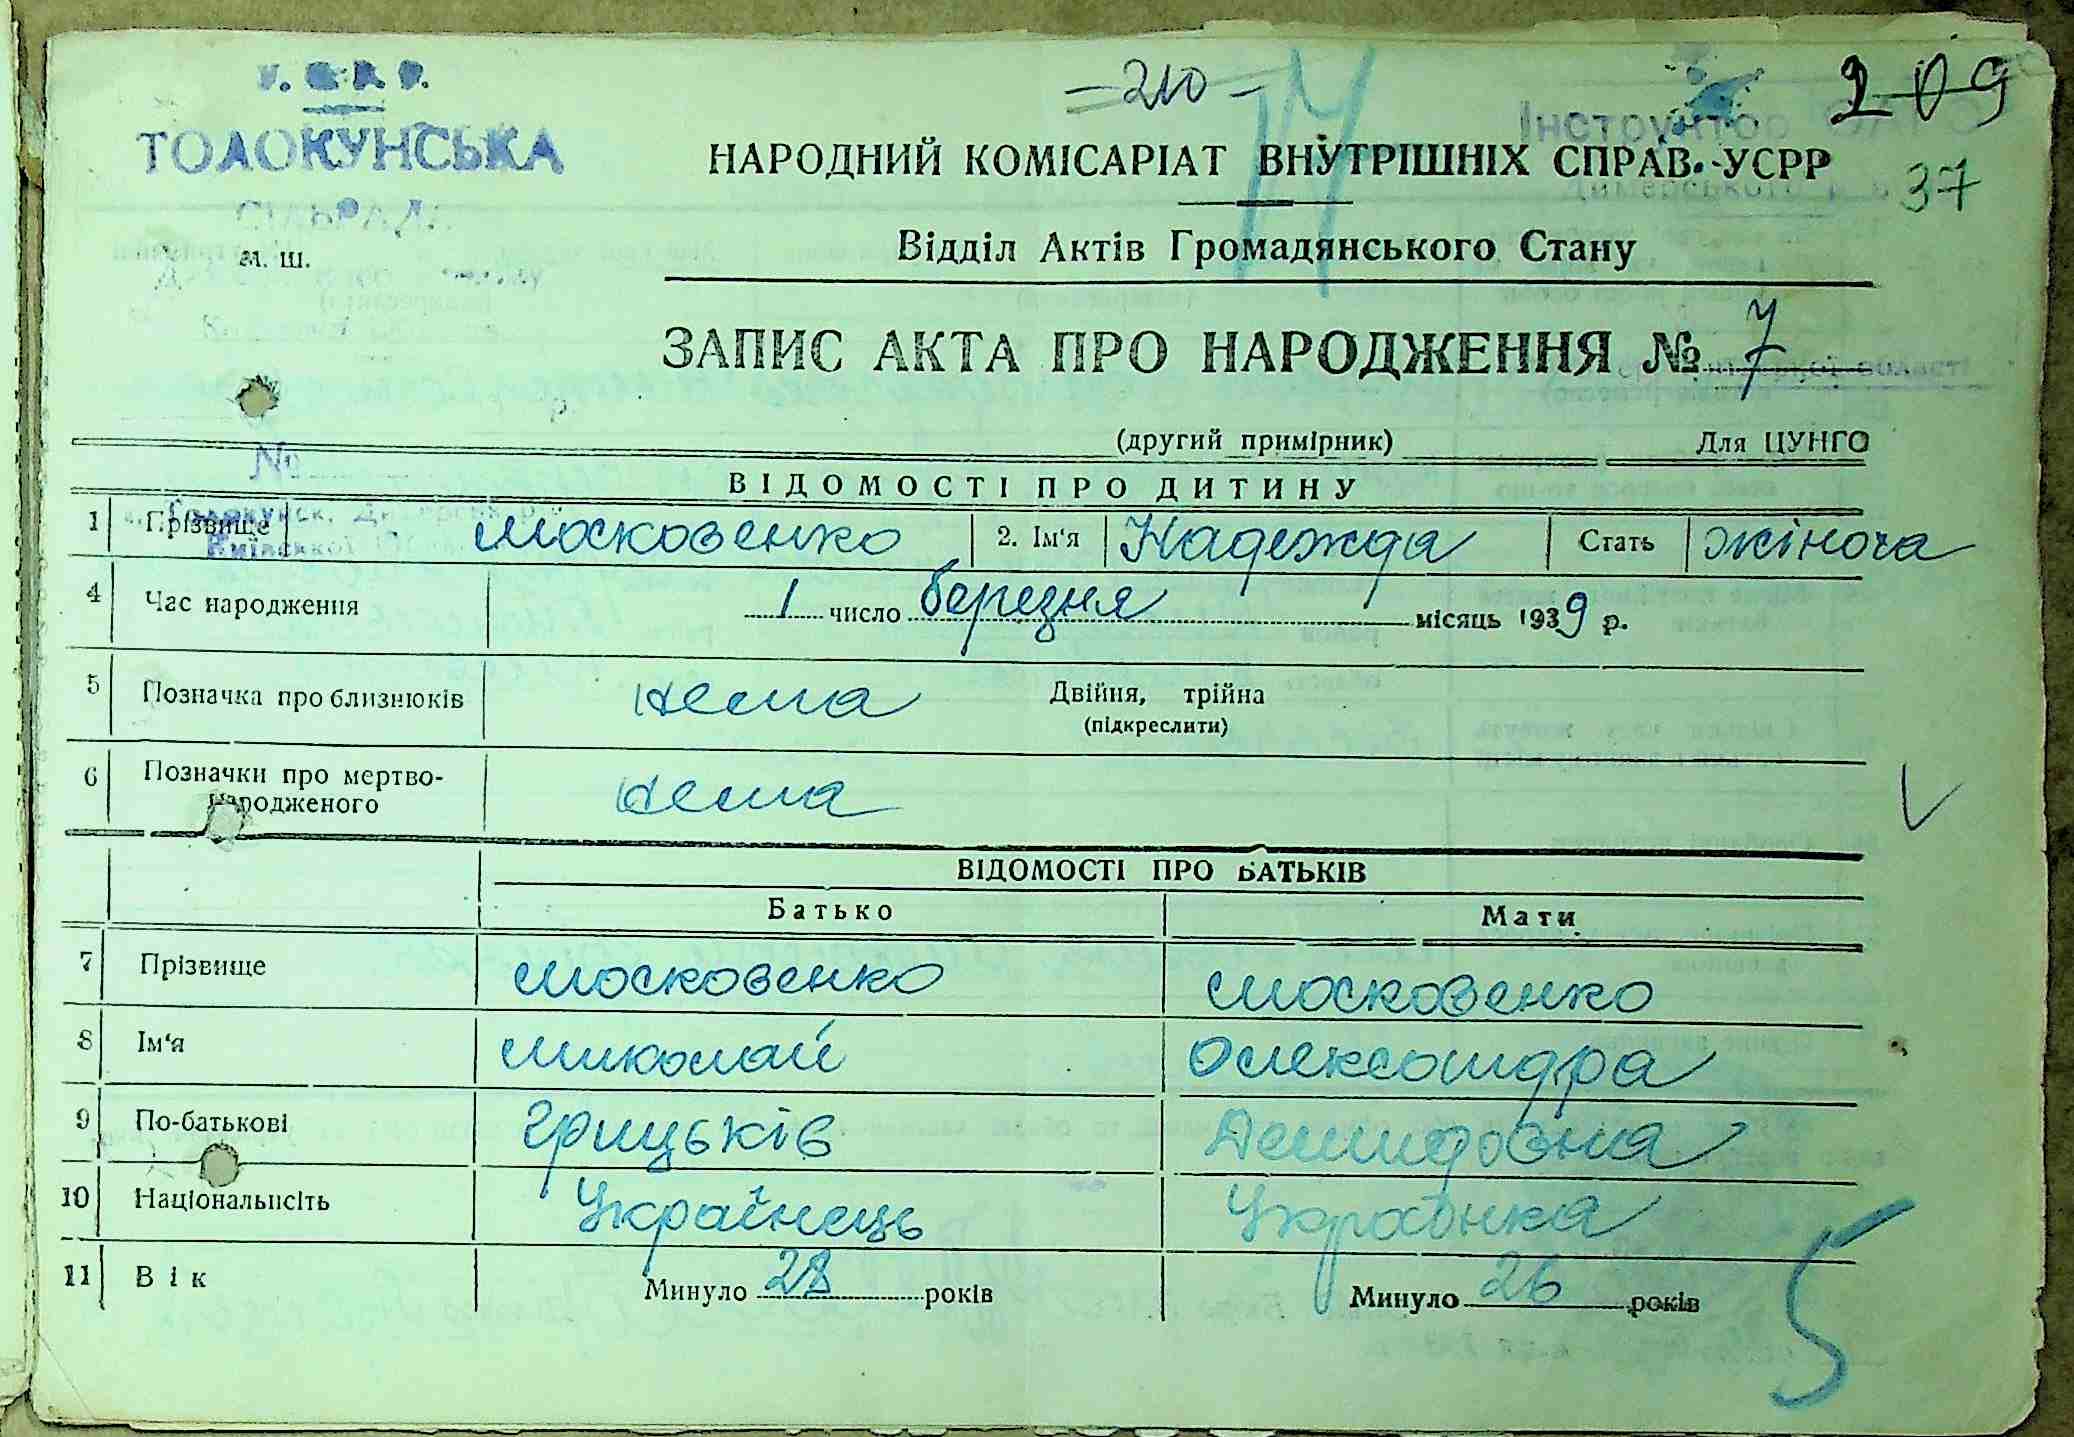 У. С. Р. Р.
ТОЛОКУНСЬКА
СІЛЬРАДА
м. ш.
№
Толокунск. Димерськ
Київської
-210-
209
37
Інструктор
Димерського
НАРОДНИЙ КОМІСАРІАТ ВНУТРІШНІХ СПРАВ. УСРР
Відділ Актів Громадянського Стану
ЗАПИС АКТА ПРО НАРОДЖЕННЯ № 7
(другий примірник) Для ЦУНГО
ВІДОМОСТІ ПРО ДИТИНУ
1 Прізвище Московенко 2. Ім'я Надежда Стать жіноча
4 Час народження 1 число березня місяць 1939 р.
5 Позначка про близнюків нема Двійня, трійна
(підкреслити)
6 Позначки про мертво-
народженого нема
ВІДОМОСТІ ПРО БАТЬКІВ
Батько Мати
7 Прізвище Московенко Московенко
8 Ім'я Миколай Олександра
9 По-батькові Грицьків Демидовна
10 Національність Українець Українка
11 Вік Минуло 28 років Минуло 26 років
5